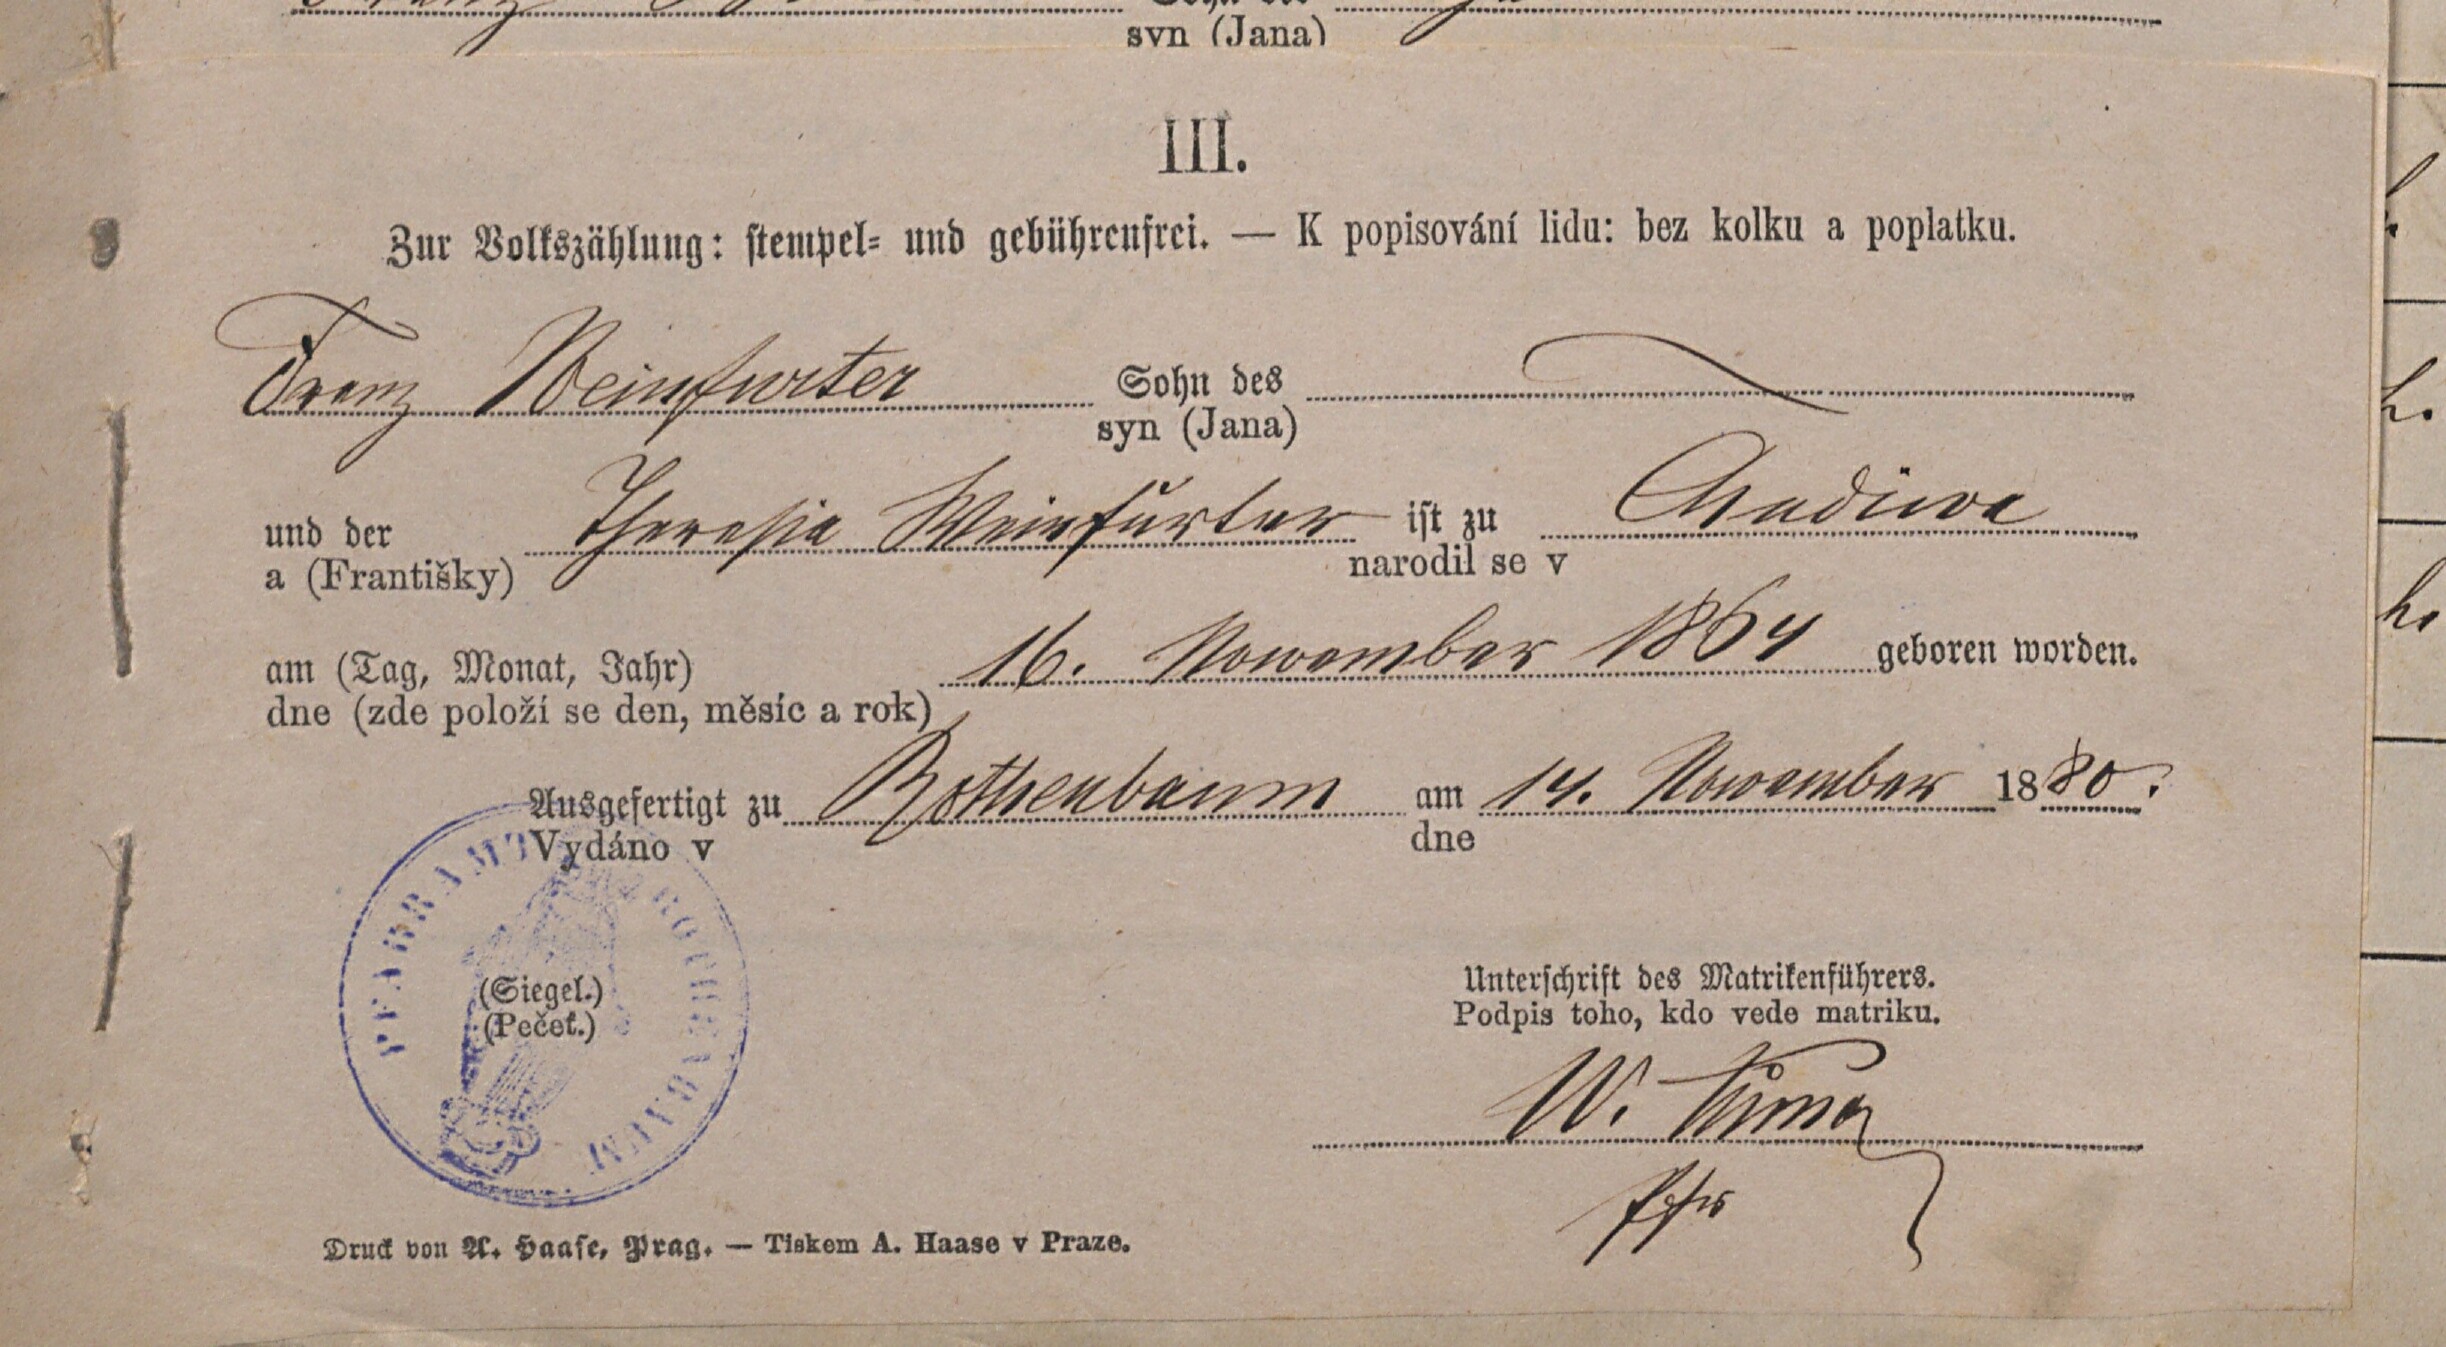 syn (Jana)
III.
Zur Volkszählung: stempel- und gebührenfrei. — K popisování lidu: bez kolku a poplatku.
Franz Weinfurter Sohn des
syn (Jana)
und der Theresia Weinfurter ist zu Chudiwa
a (Františky) narodil se v
am (Tag, Monat, Jahr) 16. November 1864 geboren worden.
dne (zde položí se den, měsíc a rok)
Ausgefertigt zu Rothenbaum am 14. November 1880.
Vydáno v dne
PFARRAMT ROTHENBAUM
(Siegel.)
(Pečeť.)
Unterschrift des Matrikenführers.
Podpis toho, kdo vede matriku.
W.
Druck von A. Haase, Prag. — Tiskem A. Haase v Praze.